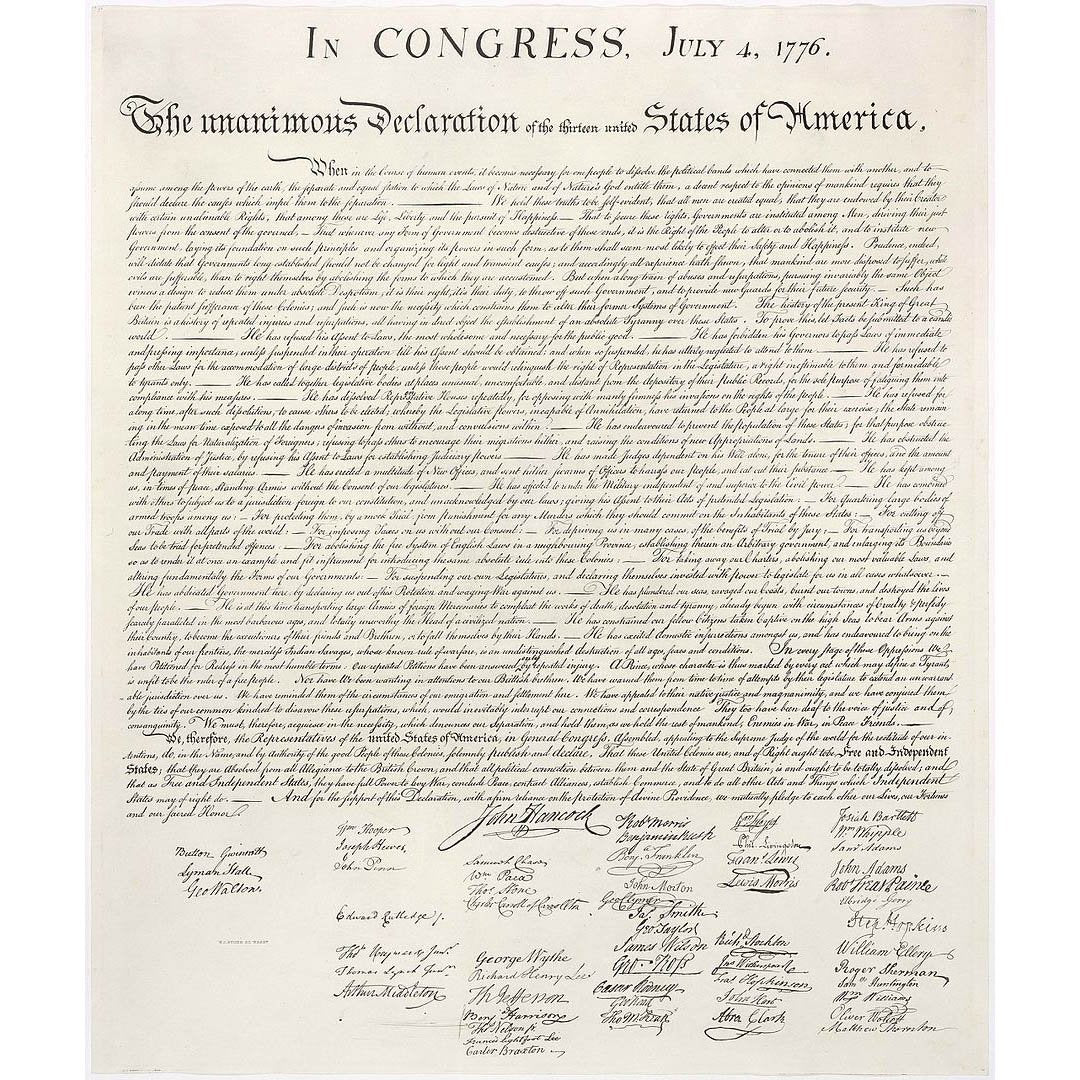 IN CONGRESS, JULY 4, 1776.
The unanimous Declaration of the thirteen united States of America,
When in the Course of human events, it becomes necessary for one people to dissolve the political bands which have connected them with another, and to
assume among the powers of the earth, the separate and equal station to which the Laws of Nature and of Nature's God entitle them, a decent respect to the opinions of mankind requires that they
should declare the causes which impel them to the separation. — We hold these truths to be self-evident, that all men are created equal, that they are endowed by their Creator
with certain unalienable Rights, that among these are Life, Liberty and the pursuit of Happiness — That to secure these rights, Governments are instituted among Men, deriving their just
powers from the consent of the governed, — That whenever any Form of Government becomes destructive of these ends, it is the Right of the People to alter or to abolish it, and to institute new
Government, laying its foundation on such principles and organizing its powers in such form, as to them shall seem most likely to effect their Safety and Happiness. Prudence, indeed,
will dictate that Governments long established should not be changed for light and transient causes; and accordingly all experience hath shewn, that mankind are more disposed to suffer, while
evils are sufferable, than to right themselves by abolishing the forms to which they are accustomed. But when a long train of abuses and usurpations, pursuing invariably the same Object
evinces a design to reduce them under absolute Despotism, it is their right, it is their duty, to throw off such Government, and to provide new Guards for their future security. — Such has
been the patient sufferance of these Colonies; and such is now the necessity which constrains them to alter their former Systems of Government. The history of the present King of Great
Britain is a history of repeated injuries and usurpations, all having in direct object the establishment of an absolute Tyranny over these States. To prove this, let Facts be submitted to a candid
world. — He has refused his Assent to Laws, the most wholesome and necessary for the public good. — He has forbidden his Governors to pass Laws of immediate
and pressing importance, unless suspended in their operation till his Assent should be obtained; and when so suspended, he has utterly neglected to attend to them. — He has refused to
pass other Laws for the accommodation of large districts of people, unless those people would relinquish the right of Representation in the Legislature, a right inestimable to them and formidable
to tyrants only. — He has called together legislative bodies at places unusual, uncomfortable, and distant from the depository of their Public Records, for the sole purpose of fatiguing them into
compliance with his measures. — He has dissolved Representative Houses repeatedly, for opposing with manly firmness his invasions on the rights of the people. — He has refused for
a long time, after such dissolutions, to cause others to be elected; whereby the Legislative powers, incapable of Annihilation, have returned to the People at large for their exercise; the State remain-
ing in the mean time exposed to all the dangers of invasion from without, and convulsions within. — He has endeavoured to prevent the population of these States; for that purpose obstruc-
ting the Laws for Naturalization of Foreigners; refusing to pass others to encourage their migrations hither, and raising the conditions of new Appropriations of Lands. — He has obstructed the
Administration of Justice, by refusing his Assent to Laws for establishing Judiciary powers. — He has made Judges dependent on his Will alone, for the tenure of their offices, and the amount
and payment of their salaries. — He has erected a multitude of New Offices, and sent hither swarms of Officers to harrass our people, and eat out their substance. — He has kept among
us, in times of peace, Standing Armies without the Consent of our legislatures. — He has affected to render the Military independent of and superior to the Civil power. — He has combined
with others to subject us to a jurisdiction foreign to our constitution, and unacknowledged by our laws; giving his Assent to their Acts of pretended Legislation: — For Quartering large bodies of
armed troops among us: — For protecting them, by a mock Trial, from punishment for any Murders which they should commit on the Inhabitants of these States: — For cutting off
our Trade with all parts of the world: — For imposing Taxes on us without our Consent: — For depriving us in many cases, of the benefits of Trial by Jury: — For transporting us beyond
Seas to be tried for pretended offences: — For abolishing the free System of English Laws in a neighbouring Province, establishing therein an Arbitrary government, and enlarging its Boundaries
so as to render it at once an example and fit instrument for introducing the same absolute rule into these Colonies: — For taking away our Charters, abolishing our most valuable Laws, and
altering fundamentally the Forms of our Governments: — For suspending our own Legislatures, and declaring themselves invested with power to legislate for us in all cases whatsoever. —
He has abdicated Government here, by declaring us out of his Protection and waging War against us. — He has plundered our seas, ravaged our Coasts, burnt our towns, and destroyed the Lives
of our people. — He is at this time transporting large Armies of foreign Mercenaries to compleat the works of death, desolation and tyranny, already begun with circumstances of Cruelty & perfidy
scarcely paralleled in the most barbarous ages, and totally unworthy the Head of a civilized nation. — He has constrained our fellow Citizens taken Captive on the high Seas to bear Arms against
their Country, to become the executioners of their friends and Brethren, or to fall themselves by their Hands. — He has excited domestic insurrections amongst us, and has endeavoured to bring on the
inhabitants of our frontiers, the merciless Indian Savages, whose known rule of warfare, is an undistinguished destruction of all ages, sexes and conditions. In every stage of these Oppressions We
have Petitioned for Redress in the most humble terms: Our repeated Petitions have been answered only by repeated injury. A Prince, whose character is thus marked by every act which may define a Tyrant,
is unfit to be the ruler of a free people. Nor have We been wanting in attentions to our Brittish brethren. We have warned them from time to time of attempts by their legislature to extend an unwarrant-
able jurisdiction over us. We have reminded them of the circumstances of our emigration and settlement here. We have appealed to their native justice and magnanimity, and we have conjured them
by the ties of our common kindred to disavow these usurpations, which, would inevitably interrupt our connections and correspondence. They too have been deaf to the voice of justice and of
consanguinity. We must, therefore, acquiesce in the necessity, which denounces our Separation, and hold them, as we hold the rest of mankind, Enemies in War, in Peace Friends. —
We, therefore, the Representatives of the united States of America, in General Congress, Assembled, appealing to the Supreme Judge of the world for the rectitude of our in-
tentions, do, in the Name, and by Authority of the good People of these Colonies, solemnly publish and declare, That these United Colonies are, and of Right ought to be Free and Independent
States; that they are Absolved from all Allegiance to the British Crown, and that all political connection between them and the State of Great Britain, is and ought to be totally dissolved; and
that as Free and Independent States, they have full Power to levy War, conclude Peace, contract Alliances, establish Commerce, and to do all other Acts and Things which Independent
States may of right do. — And for the support of this Declaration, with a firm reliance on the protection of divine Providence, we mutually pledge to each other our Lives, our Fortunes
and our sacred Honor.
Button Gwinnett
Lyman Hall
Geo Walton.
Wm Hooper
Joseph Hewes,
John Penn
Edward Rutledge /.
Thos Heyward Junr.
Thomas Lynch Junr.
Arthur Middleton
John Hancock
Samuel Chase
Wm Paca
Thos Stone
Charles Carroll of Carrollton
George Wythe
Richard Henry Lee
Th Jefferson
Benj Harrison
Thos Nelson jr.
Francis Lightfoot Lee
Carter Braxton
Robt Morris
Benjamin Rush
Benj. Franklin
John Morton
Geo Clymer
Jas. Smith
Geo. Taylor
James Wilson
Geo. Ross
Caesar Rodney
Geo Read
Tho M:Kean
Wm Floyd
Phil. Livingston
Frans. Lewis
Lewis Morris
Richd. Stockton
Jno Witherspoon
Fras. Hopkinson
John Hart
Abra Clark
Josiah Bartlett
Wm Whipple
Saml Adams
John Adams
Robt Treat Paine
Elbridge Gerry
Step. Hopkins
William Ellery
Roger Sherman
Saml Huntington
Wm Williams
Oliver Wolcott
Matthew Thornton